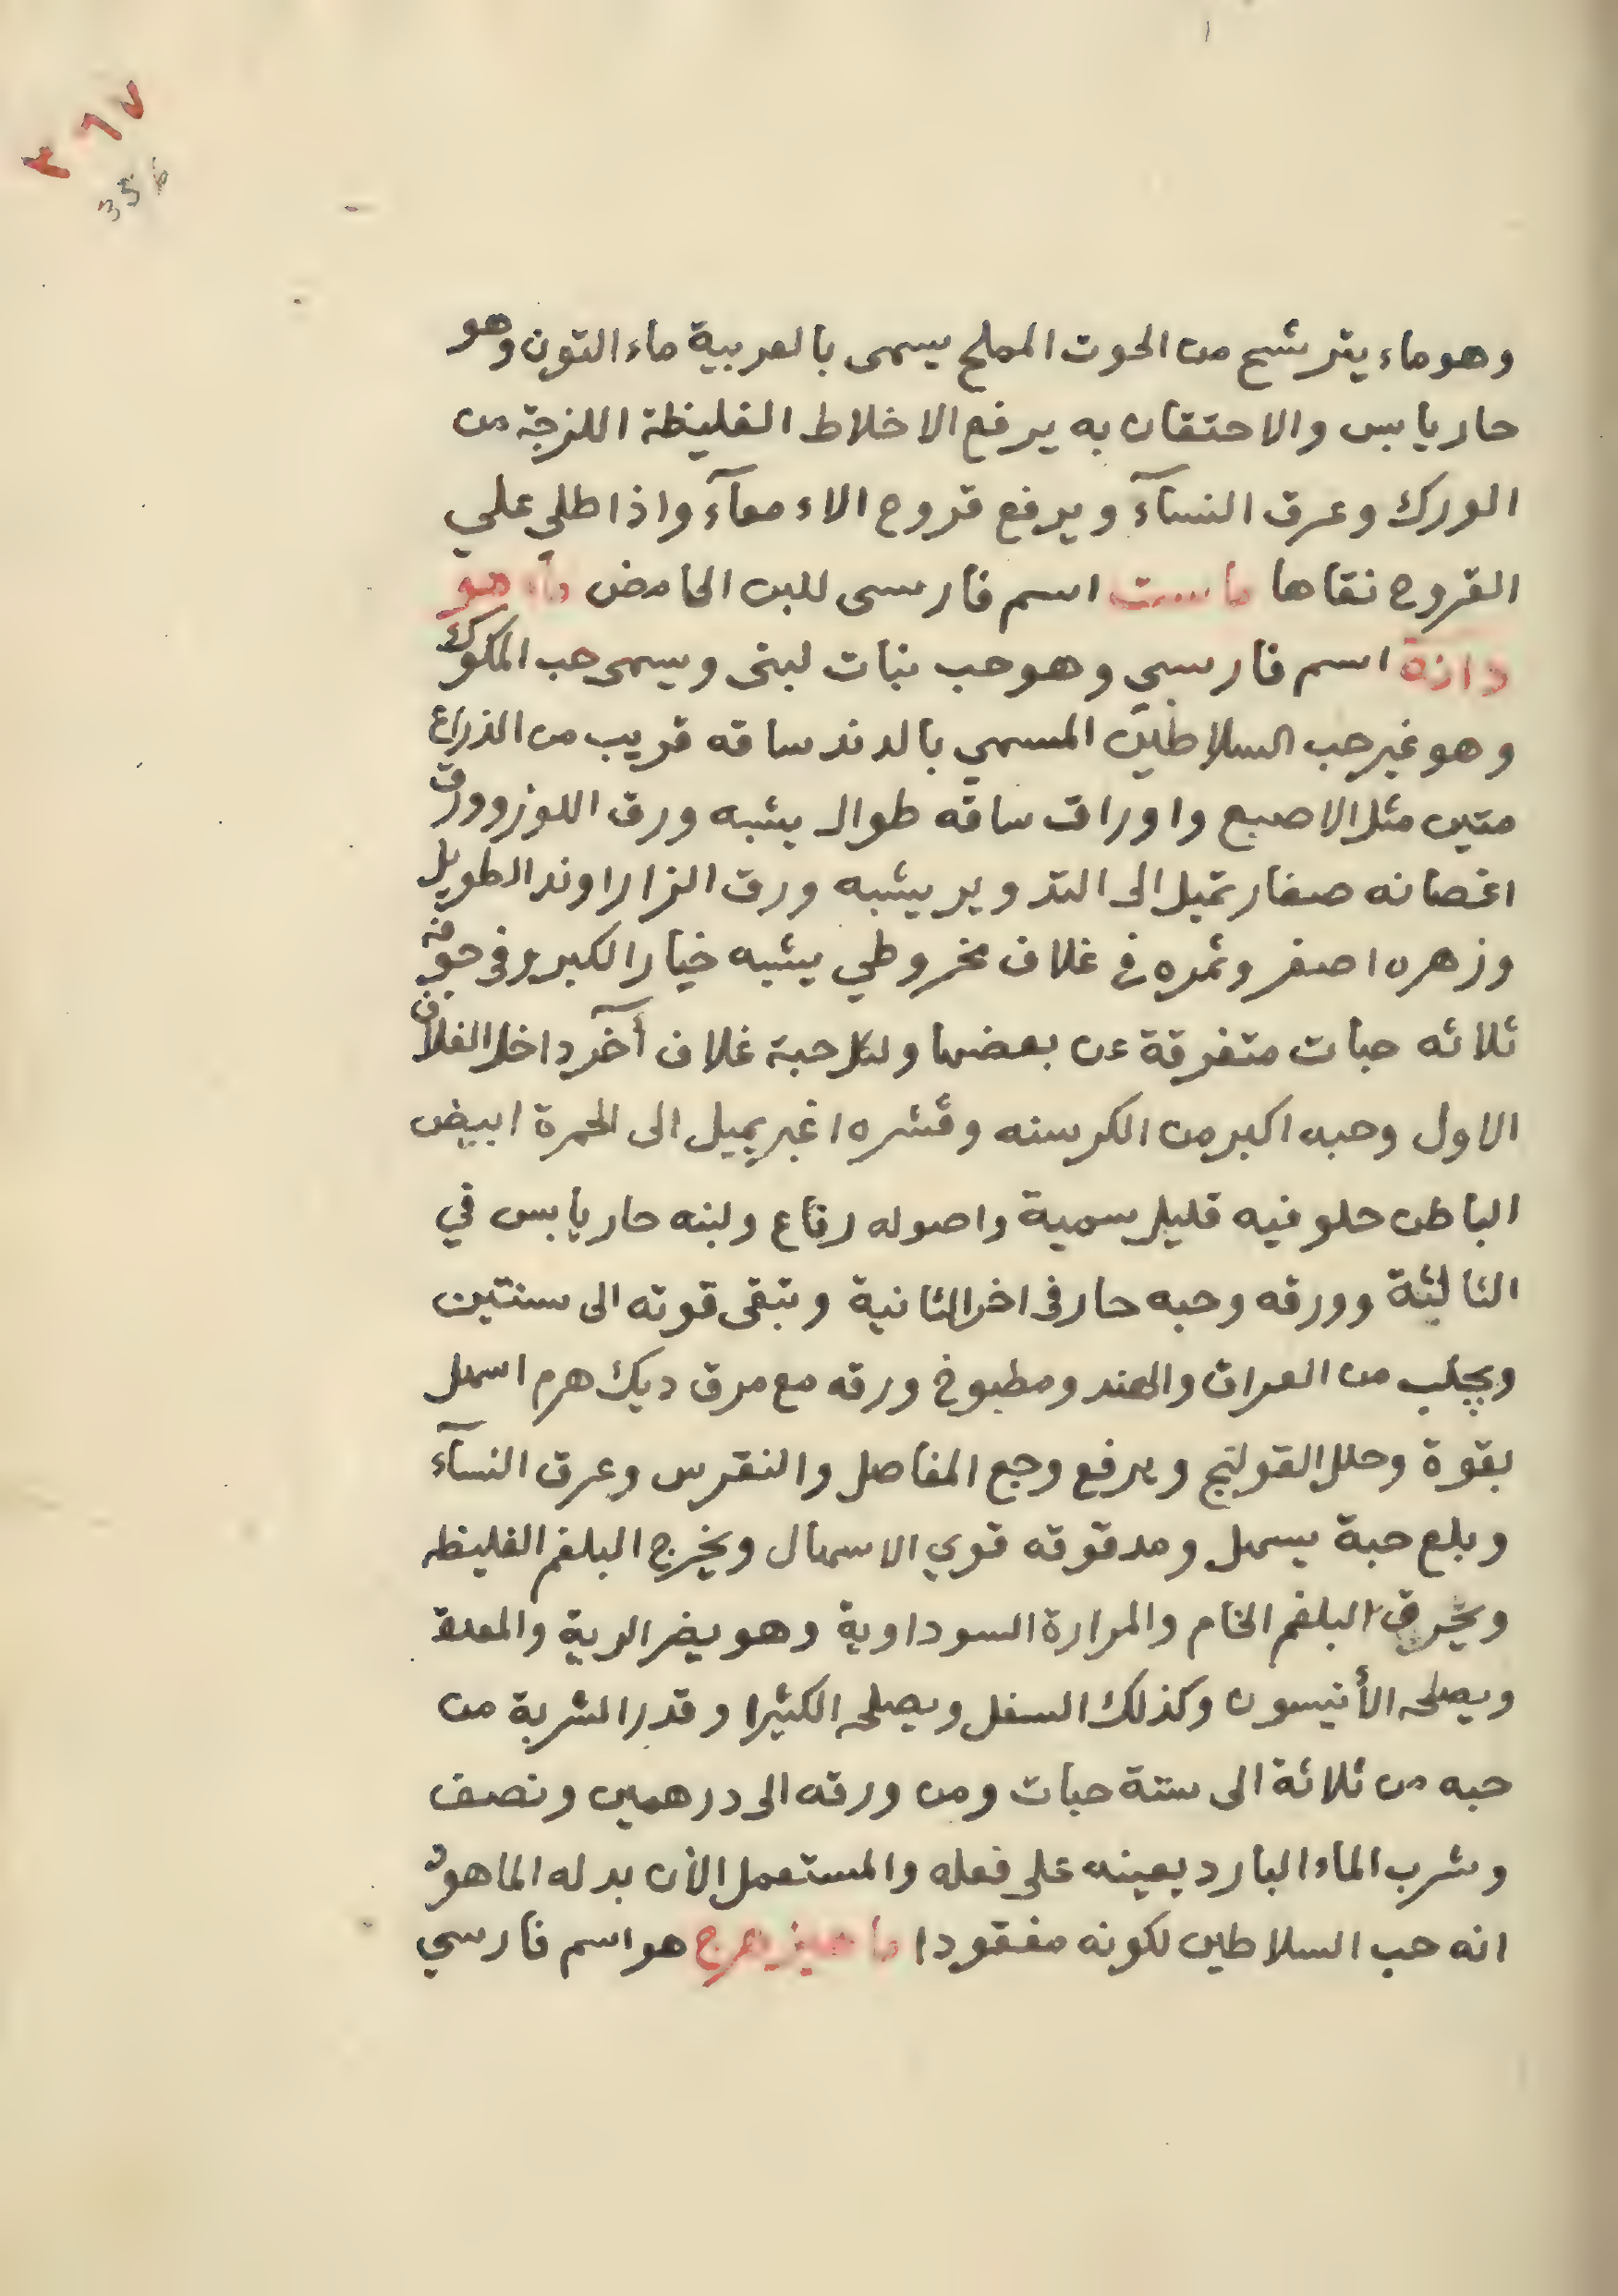 ٣٦٧
356
وهو ماء يترشح من الحوت المملح يسمى بالعربية ماء التون وهو
حار يابس والاحتقان به يرفع الاخلاط الغليظة اللزجة من
الورك وعرق النسآء ويرفع قروح الاء معآء واذا طلي علي
القروح نقاها ماست اسم فارسى للبن الحامض ماء هو
دانة اسم فارسي وهو حب نبات لبنى ويسمى حب المكوك
وهو غير حب السلاطين المسمي بالدند ساقه قريب من الذراع
متين مثل الاصبع واوراق ساقه طوال يشبه ورق اللوز وورق
اغصانه صغار تميل الى التدوير يشبه ورق الزاراوند الطويل
وزهره اصفر وثمره في غلاف مخروطي يشبه خيار الكبر وفى جوفه
ثلاثه حبات متفرقة عن بعضها ولكل حبة غلاف آخر داخل الغلاف
الاول وحبه اكبر من الكرسنه وقشره اغبر يميل الى الحمرة ابيض
الباطن حلو فيه قليل سمية واصوله رفاع ولبنه حار يابس في
الثالثة وورقه وحبه حار فى اخر الثانية وتبقى قوته الى سنتين
ويجلب من العراق والهند ومطبوخ ورقه مع مرق ديك هرم اسهل
بقوة وحلل القولنج ويرفع وجع المفاصل والنقرس وعرق النسآء
وبلع حبة يسهل ومدقوقه قوي الاسهال ويخرج البلغم الغليظ
ويخرق البلغم الخام والمرارة السوداوية وهو يضر الرية والمعدة
ويصلحه الأنيسون وكذلك السفل ويصلحه الكثيرا وقدر الشربة من
حبه من ثلاثة الى ستة حبات ومن ورقه الى درهمين ونصف
وشرب الماء البارد يعينه على فعله والمستعمل الأن بدله الماهود
انه حب السلاطين لكونه مفقودا ماهيزهرج هو اسم فارسي